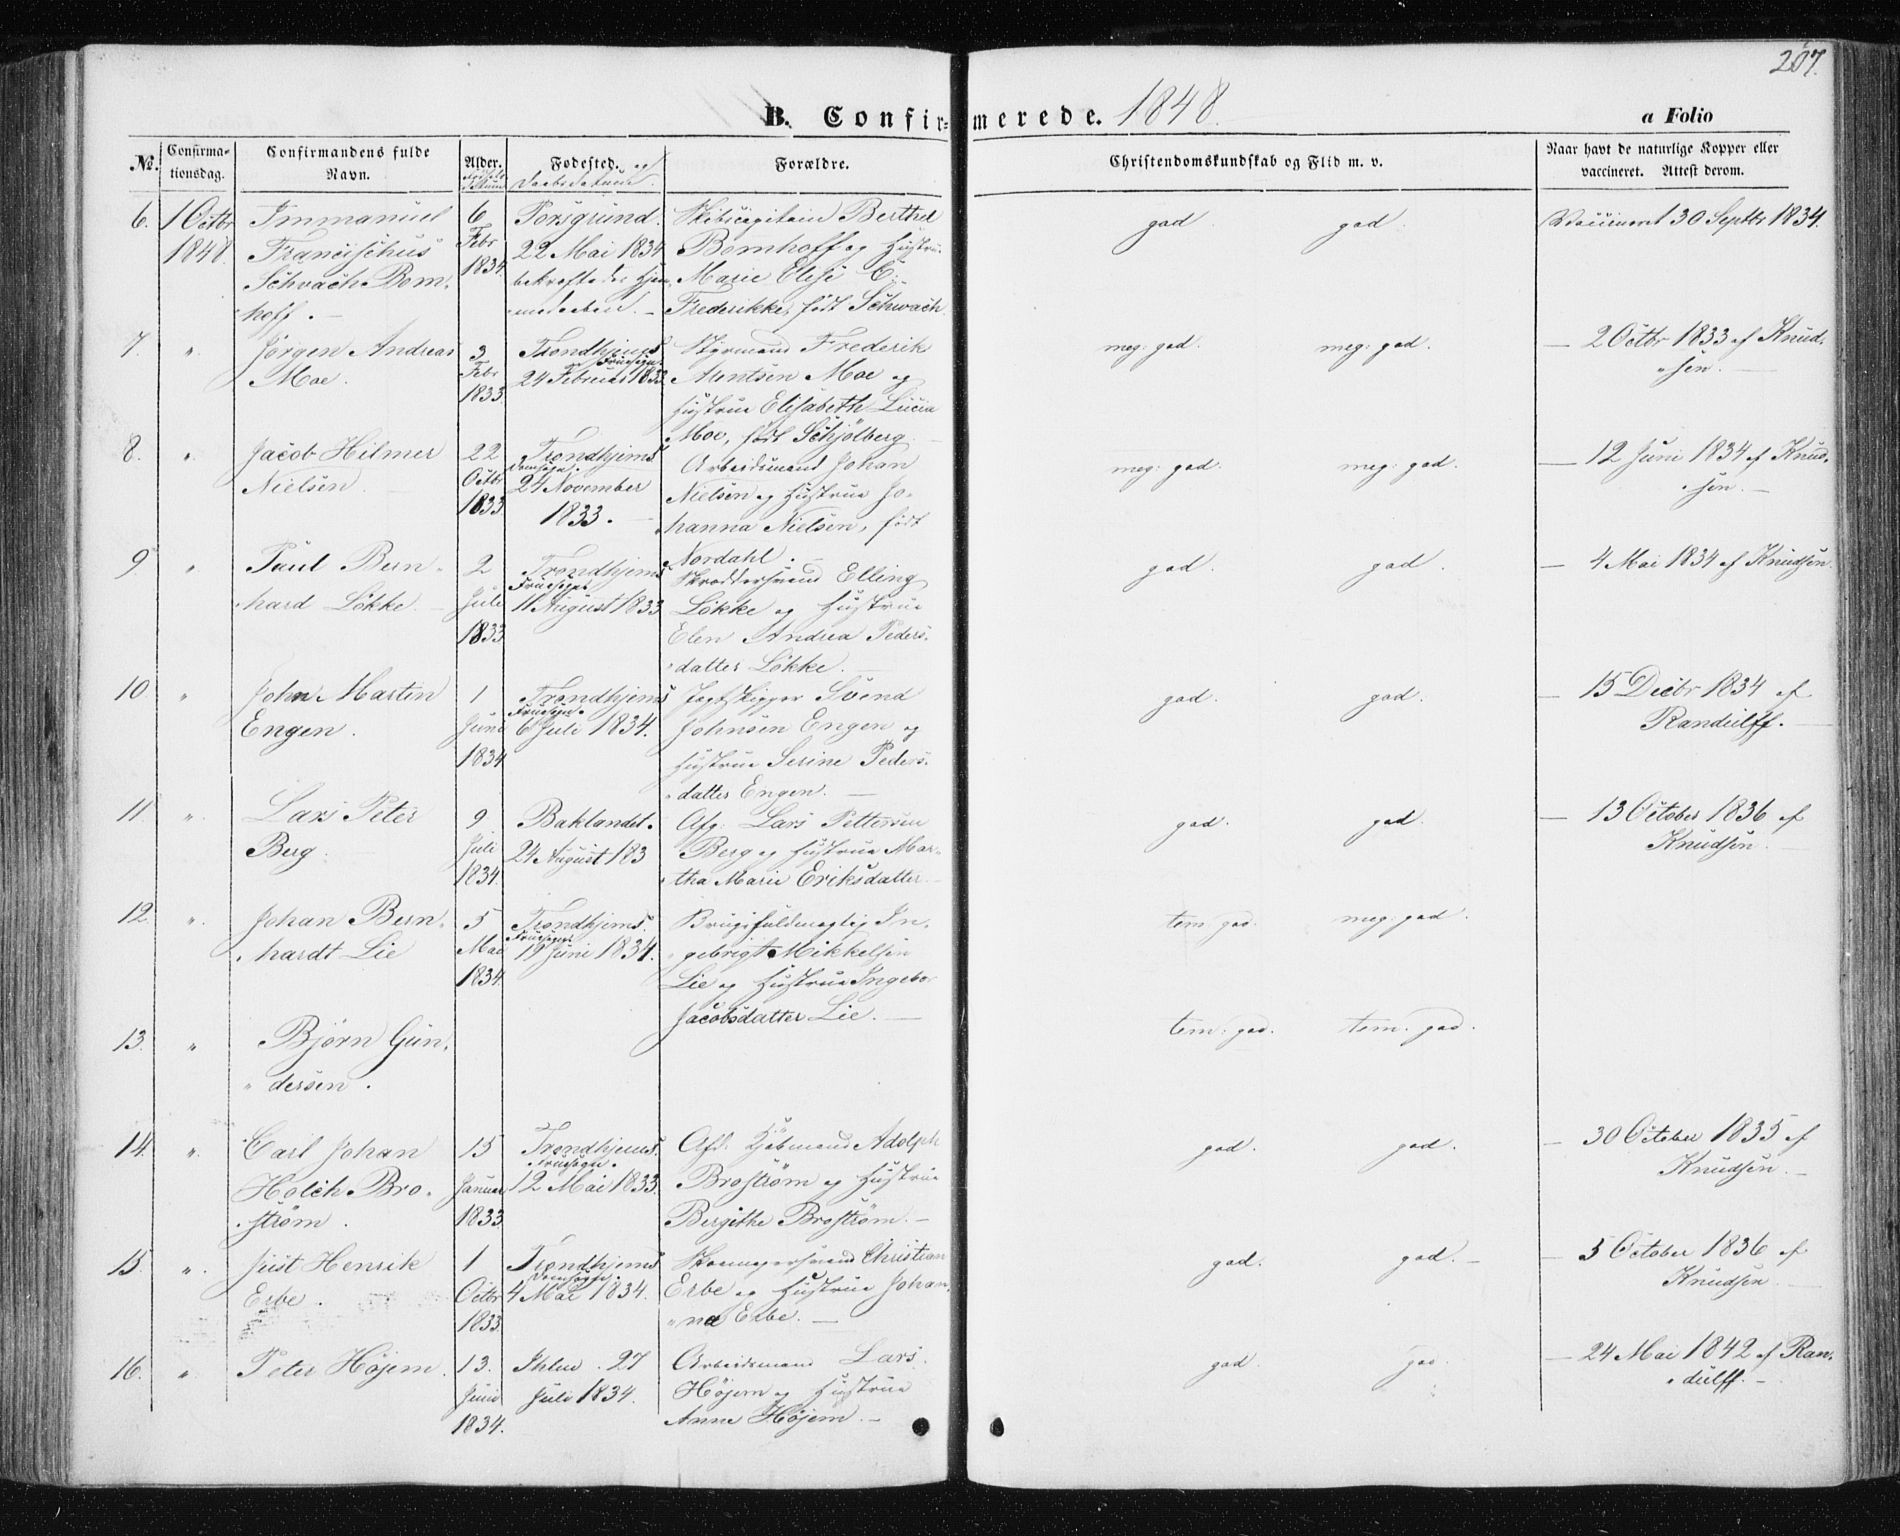 207.
B. Confirmerede. 1848.
a Folio
No.
Confirmationsdag.
Confirmandens fulde Navn.
Alder.
Fødested. og Daabsdatum.
Forældre.
Christendomskundskab og Flid m. v.
Naar havt de naturlige Kopper eller vaccineret. Attest derom.
6. 1 Octbr Immanuel 6 Porsgrund. Skibscapitain Berthel god. god. Vaccineret 30 Septbr 1834.
1848. Francischus Febr 22 Mai 1834 Bomhoff og Hustrue
Schvach Bom- 1834. Marie Elise C:
hoff. Frederikke, født Schwach.
7. " Jørgen Andreas 3 Trondhjems Styrmand Frederik meg: god. meg: god. — 2 Octbr 1833 af Knud-
Moe. Febr Fruesogn Arentsen Moe og sen.
1833. 24 Februar 1833. Hustrue Elisabeth Lucia
Moe, født Schjølberg.
8. " Jacob Hilmer 22 Trondhjems Arbeidsmand Johan meg: god. meg: god. — 12 Juni 1834 af Knud-
Nielsen. Octbr Domsogn. Nielsen og Hustrue Jo- sen.
1833 24 November hanna Nielsen, født
1833. Nordahl.
9. " Paul Bern- 2 Trondhjems Skreddersvend Elling god. god. — 4 Mai 1834 af Knudsen.
hard Løkke. Juli Fruesogn Løkke og Hustrue
1833 11 August 1833 Elen Andrea Peders-
datter Løkke.
10. " John Martin 1 Trondhjems Jagtskipper Svend god. god. — 15 Decbr 1834 af
Engen. Juni Fruesogn. Johnsen Engen og Randulff.
1834 6 Juli 1834. Hustrue Serine Peders-
datter Engen.
11. " Lars Peter 9 Baklandet. Afg. Lars Pettersen god. god. — 13 October 1836 af
Berg. Juli 24 August 183 Berg og Hustrue Mar- Knudsen.
1834. tha Marie Eriksdatter.
12. " Johan Bern- 5 Trondhjems. Brugsfuldmægtig In- tem: god. meg: god.
hardt Lie Mai Fruesogn gebrigt Mikkelsen
1834. 19 Juni 1834. Lie og Hustrue Ingebor
Jacobsdatter Lie.
13. " Bjørn Gun- tem: god. tem. god.
dersen.
14. " Carl Johan 15 Trondhjems. Afd. Kjøbmand Adolph god. god. — 30 October 1835 af
Holch Bro- Januar Fruesogn. Brostrøm og Hustrue Knudsen.
strøm. 1833. 12 Mai 1833. Bergithe Brostrøm.
15. " Just Henrik 1 Trondhjems Skomagersvend Christian god. god. — 5 October 1836 af
Erbe. Octbr Domsogn. Erbe og Hustrue Johan- Knudsen.
1833. 4 Mai 1834. na Erbe.
16. " Peter Højem. 13. Ihlen. 27 Arbeidsmand Lars god. god. — 24 Mai 1842 af Ran-
Juni Juli 1834. Højem og Hustrue dulff.
1834. Anne Højem.